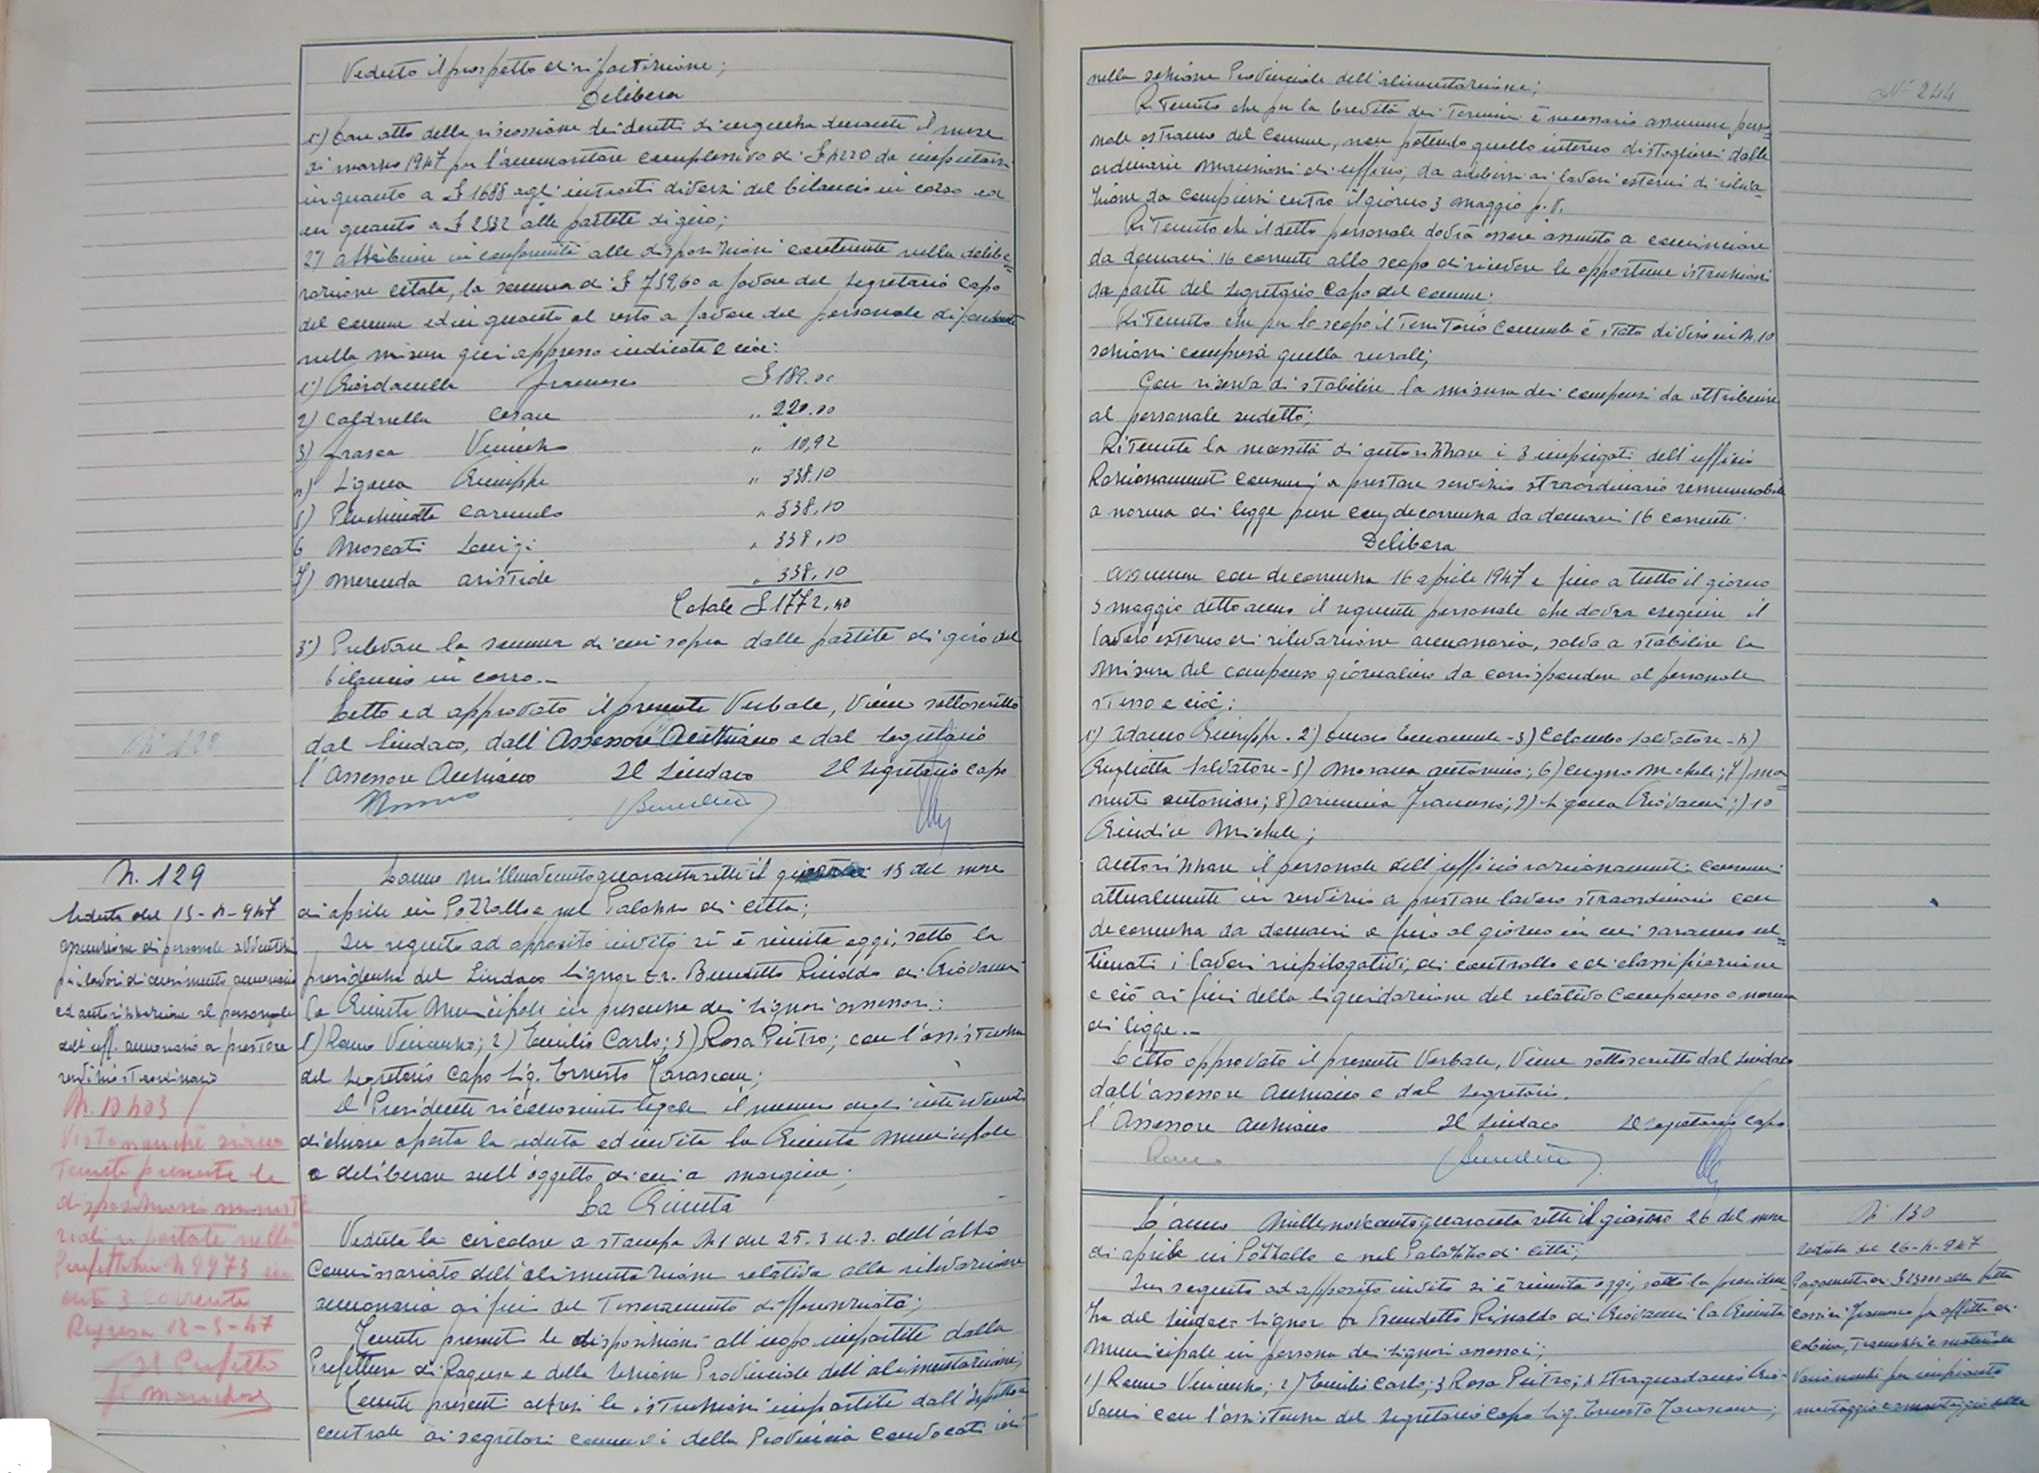 Veduto il prospetto di ripartizione;
Delibera
1°) Dare atto della riscossione dei diritti di urgenza durante il mese
di marzo 1947 per l'ammontare complessivo di £ 4220 da imputarsi
in quanto a £ 1688 agli introiti diversi del bilancio in corso ed
in quanto a £ 2532 alle partite di giro;
2) Attribuire in conformità alle disposizioni contenute nella delibe=
razione citata, la somma di £ 759,60 a favore del Segretario Capo
del comune ed in quanto al resto a favore del personale dipendente
nella misura qui appresso indicata e cioè:
1°) Giordanella Francesco £ 189.00
2) Caldarella Cesare " 220.00
3) Frasca Vincenzo " 10,92
4) Ligama Giuseppe " 338.10
5) Pluchinotta Carmelo " 338,10
6 Moscati Luigi " 338,10
7) Merenda Aristide " 338,10
Totale £ 1772,40
3°) Prelevare la somma di cui sopra dalle partite di giro del
bilancio in corso.-
Letto ed approvato il presente Verbale, viene sottoscritto
dal Sindaco, dall'Assessore Anziano e dal Segretario
l'Assessore Anziano Il Sindaco Il Segretario Capo
N. 129
Seduta del 15-4-947
assunzione di personale avventizio
pei lavori di censimento annonario
ed autorizzazione al personale
dell'uff. annonario a prestare
servizio straordinario
N. 10403
Visto nonchè siano
Tenute presente le
disposizioni ministe
riali riportate nella
Prefettizia N 9973 in
data 3 corrente
Ragusa 12-5-47
Il Prefetto
L'anno millenovecentoquarantasette il giorno 15 del mese
di aprile in Pozzallo e nel Palazzo di città;
In seguito ad apposito invito si è riunita oggi, sotto la
presidenza del Sindaco Signor Dr. Benedetto Rinaldo di Giovanni
la Giunta Municipale in presenza dei Signori assessori:
1) Romeo Vincenzo; 2) Emilio Carlo; 3) Rosa Pietro; con l'assistenza
del Segretario Capo Sig. Ernesto Tarascone;
Il Presidente riconosciuto legale il numero degli intervenuti
dichiara aperta la seduta ed invita la Giunta Municipale
a deliberare sull'oggetto di cui a margine;
La Giunta
Veduta la circolare a stampa N.1 del 25.3 u.s. dell'Alto
Commissariato dell'alimentazione relativa alla rilevazione
annonaria ai fini del Tesseramento differenziato;
Tenute presenti le disposizioni all'uopo impartite dalla
Prefettura di Ragusa e della Sezione Provinciale dell'alimentazione;
Tenute presenti altresì le istruzioni impartite dall'Ispettore
centrale ai segretari comunali della Provincia convocati ieri
N° 244
nella sezione Provinciale dell'alimentazione;
Ritenuto che per la brevità dei Termini è necessario assumere perso=
nale estraneo del Comune, non potendo quello interno distogliersi dalle
ordinarie mansioni di ufficio, da adibirsi ai lavori esterni di rileva
zione da compiersi entro il giorno 3 maggio p.v.
Ritenuto che il detto personale dovrà essere assunto a cominciare
da domani 16 corrente allo scopo di ricevere le opportune istruzioni
da parte del Segretario Capo del Comune;
Ritenuto che per lo scopo il Territorio Comunale è stato diviso in N. 10
sezioni compresa quella rurale;
Con riserva di stabilire la misura dei compensi da attribuire
al personale sudetto;
Ritenuta la necessità di autorizzare i 3 impiegati dell'ufficio
Razionamenti Consumi a prestare servizio straordinario remunerabile
a norma di legge pure con decorrenza da domani 16 corrente.
Delibera
Assumere con decorrenza 16 aprile 1947 e fino a tutto il giorno
3 maggio detto anno il seguente personale che dovrà eseguire il
lavoro esterno di rilevazione annonaria, salvo a stabilire la
misura del compenso giornaliero da corrispondere al personale
stesso e cioè:
1°) Adamo Giuseppe. 2) Emanuele - 3) Colombo Salvatore - 4)
Guglietta Salvatore - 5) Morana Antonino; 6) Cugno Michele; 7)
Antonino; 8) Francesco; 9) Ligama Giovanni; ) 10
Giudice Michele;
Autorizzare il personale dell'ufficio razionamenti consumi
attualmente in servizio a prestare lavoro straordinario con
decorrenza da domani e fino al giorno in cui saranno ul=
timati i lavori riepilogativi, di controllo e di classificazione
e ciò ai fini della liquidazione del relativo compenso a norma
di legge.-
Letto approvato il presente Verbale, viene sottoscritto dal Sindaco
dall'assessore Anziano e dal Segretario.
l'Assessore Anziano Il Sindaco Il Segretario Capo
L'anno Millenovecentoquarantasette il giorno 26 del mese
di aprile in Pozzallo e nel Palazzo di città;
In seguito ad apposito invito si è riunita oggi, sotto la presiden-
za del Sindaco Signor Dr Benedetto Rinaldo di Giovanni la Giunta
Municipale in persona dei Signori assessori;
1) Romeo Vincenzo; 2) Emilio Carlo; 3 Rosa Pietro; 4 Straquadanio Gio-
vanni con l'assistenza del Segretario Capo Sig. Ernesto Tarascone;
N° 130
Seduta del 26-4-947
Pagamento di £ 23500 alla ditta
Francesco per affitto di
cabina, e materiale
per impianto
montaggio e smontaggio della